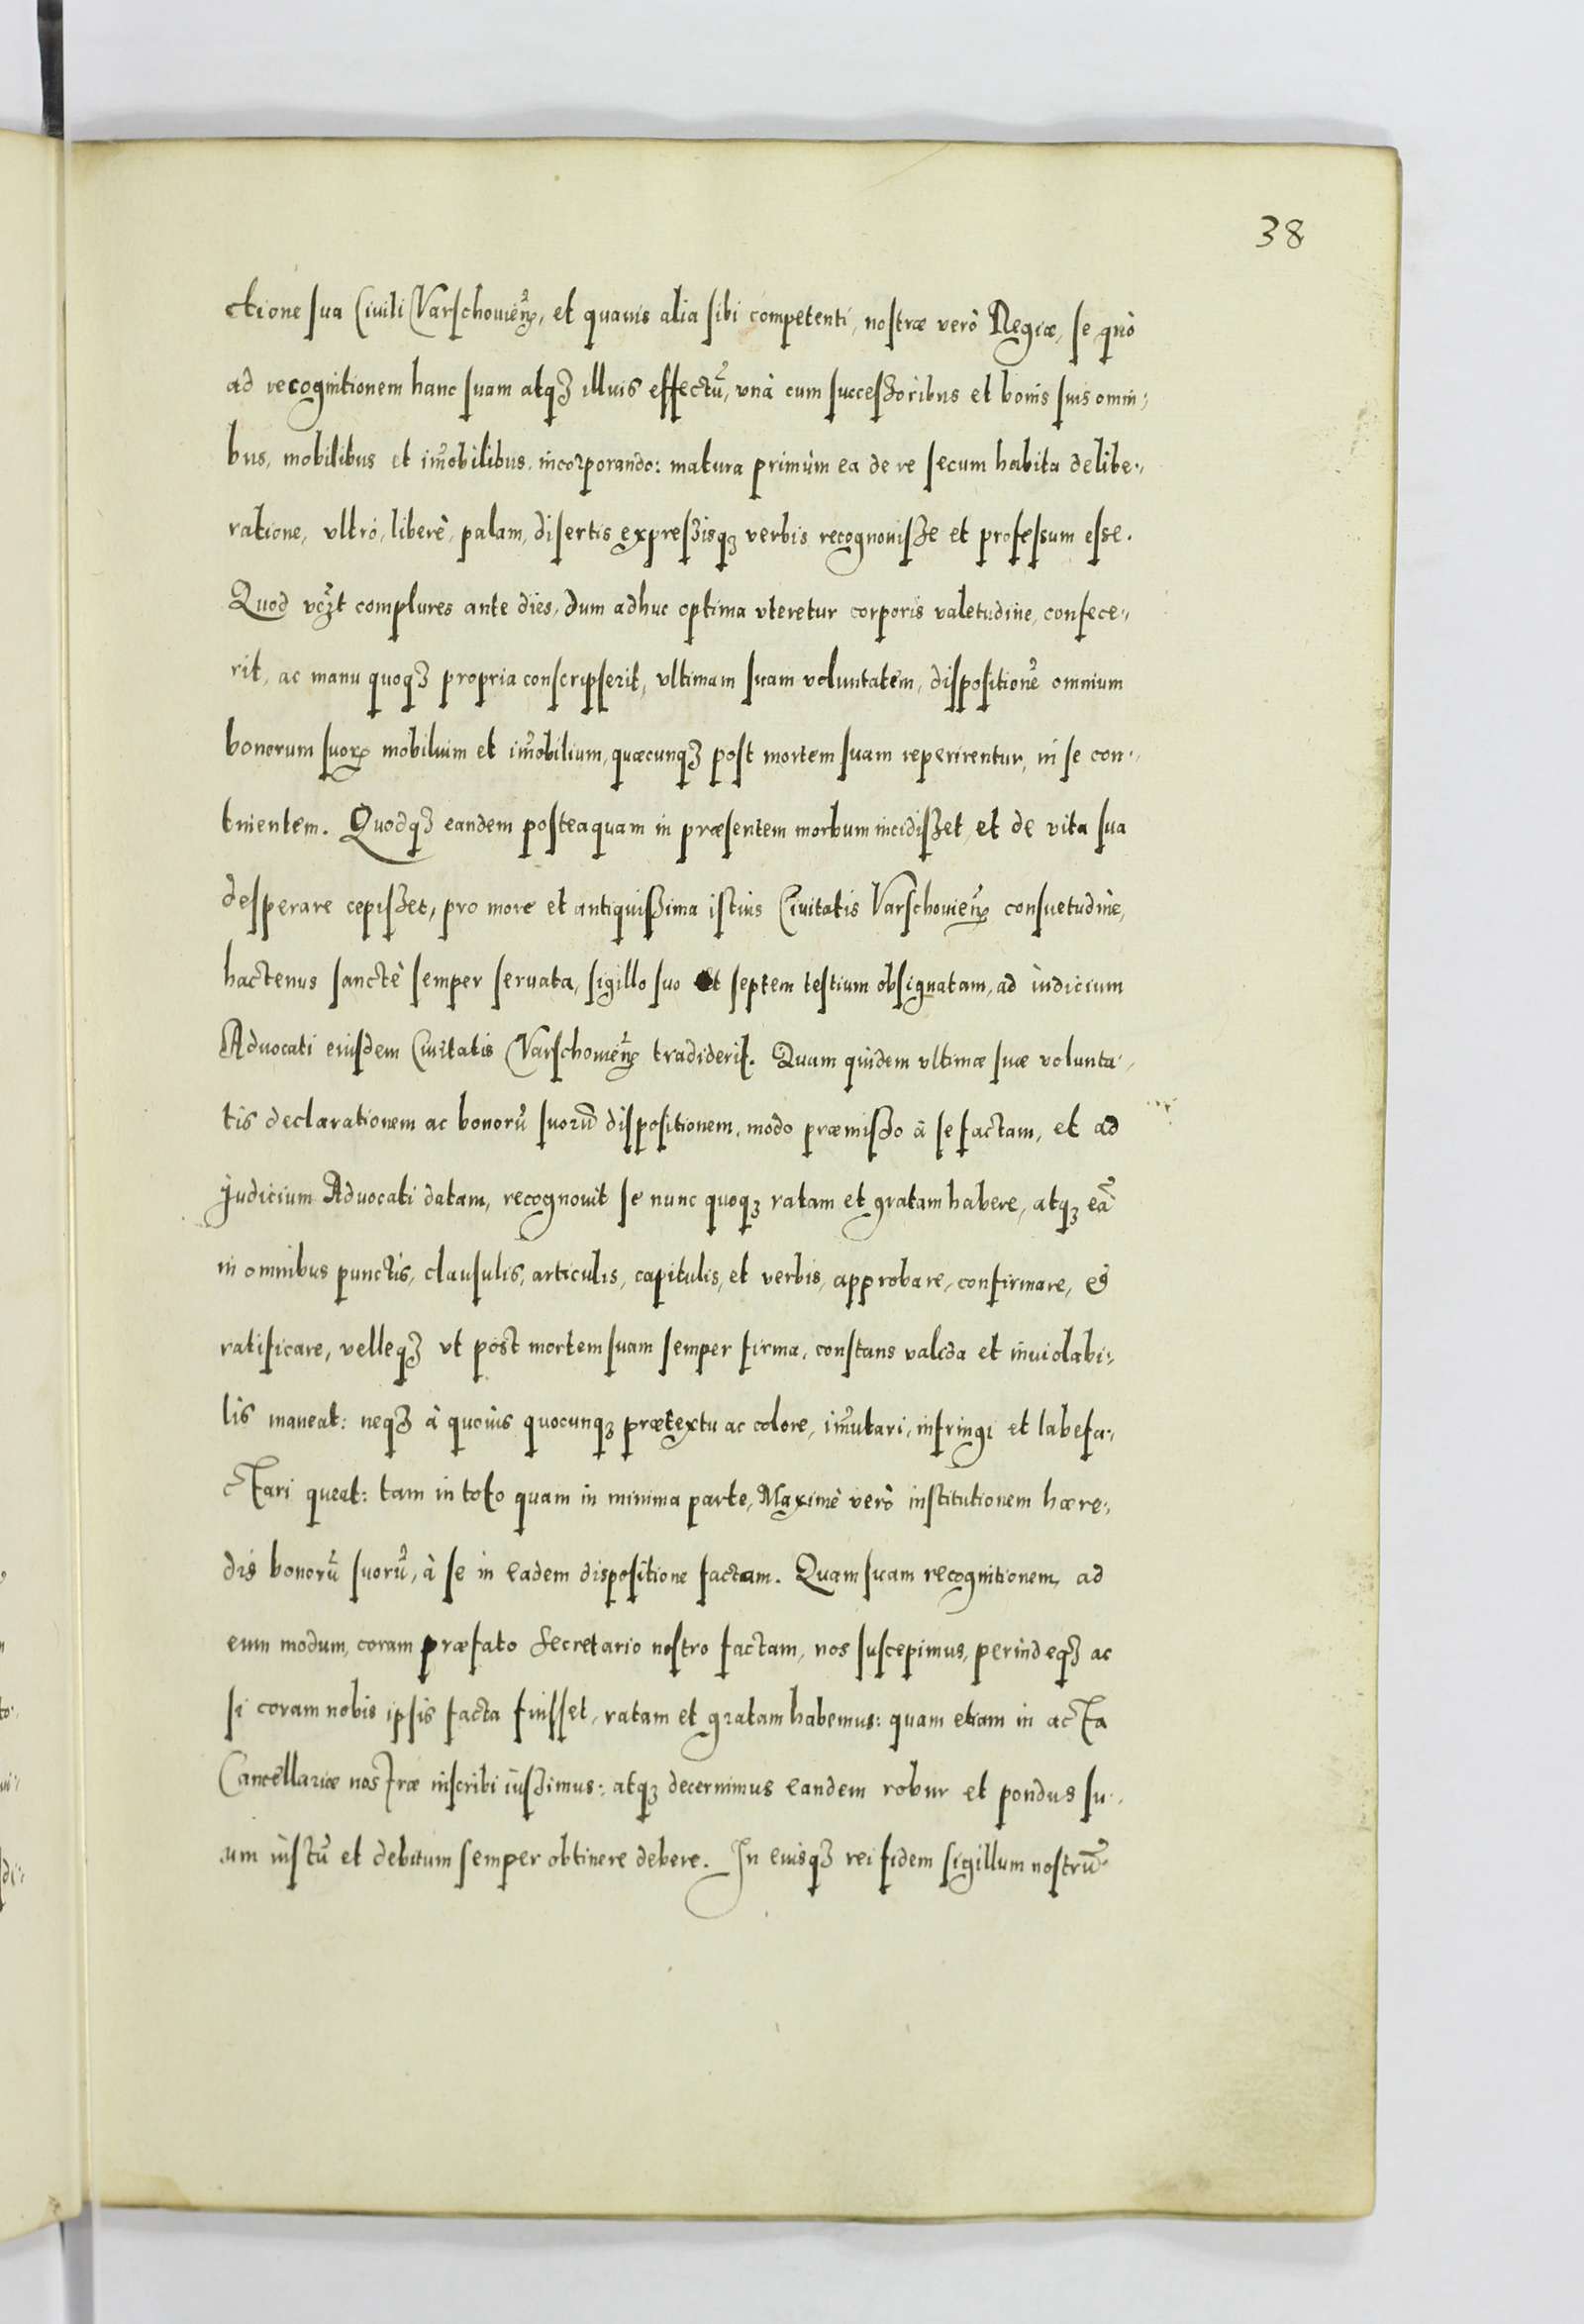 38
ctione sua Ciuili Varschouieñ, et quauis alia sibi competenti, nostræ verò Regiæ, se quò
ad recognitionem hanc suam atqꝫ illius effectũ, vnà cum successoribus et bonis suis omni:
bus, mobilibus et im̃obilibus incorporando: matura primùm ea de re secum habita delibe:
ratione, vltrò, liberè, palam, disertis expressisqꝫ verbis recognouisse et professum esse.
Quod vcꝫt complures ante dies, dum adhuc optima vteretur corporis valetudine, confece:
rit, ac manu quoqꝫ propria conscripserit, vltimam suam voluntatem, dispositionẽ omnium
bonorum suorꝝ mobilium et im̃obilium, quæcunqꝫ post mortem suam reperirentur, in se con:
tinentem. Quodqꝫ eandem posteaquam in præsentem morbum incidisset, et de vita sua
desperare cepisset, pro more et antiquissima istius Ciuitatis Varschouieñ consuetudine,
hactenus sanctè semper seruata, sigillo suo et septem testium obsignatam, ad iudicium
Aduocati eiusdem Ciuitatis Varschouieñ tradiderit. Quam quidem vltimæ suæ volunta:
tis declarationem ac bonorũ suorũ dispositionem, modo præmisso à se factam, et ad
Judicium Aduocati datam, recognouit se nunc quoqꝫ ratam et gratam habere, atqꝫ eã
in omnibus punctis, clausulis, articulis, capitulis, et verbis, approbare, confirmare, et
ratificare, velleqꝫ vt post mortem suam semper firma, constans valida et inuiolabi:
lis maneat: neqꝫ à quouis quocunqꝫ prætextu ac colore, im̃utari, infringi et labefa:
ctari queat: tam in toto quam in minima parte, Maximè verò institutionem hære:
dis bonorũ suorũ, à se in eadem dispositione factam. Quam suam recognitionem, ad
eum modum, coram præfato Secretario nostro factam, nos suscepimus, perindeqꝫ ac
si coram nobis ipsis facta fuisset, ratam et gratam habemus: quam etiam in acta
Cancellariæ nostræ inscribi iussimus: atqꝫ decernimus eandem robur et pondus su:
um iustũ et debitum semper obtinere debere. In euisqꝫ rei fidem sigillum nostrũ